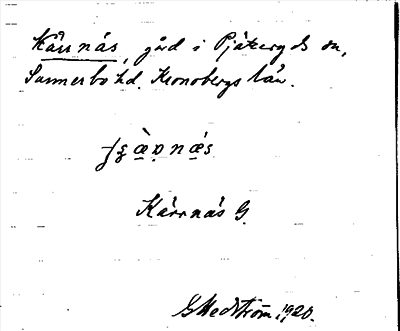 Kärrnäs, gård i Pjätteryds sn,
Sunnerbo hd. Kronobergs län.
Kärrnäs G.
G Hedström. 1920.